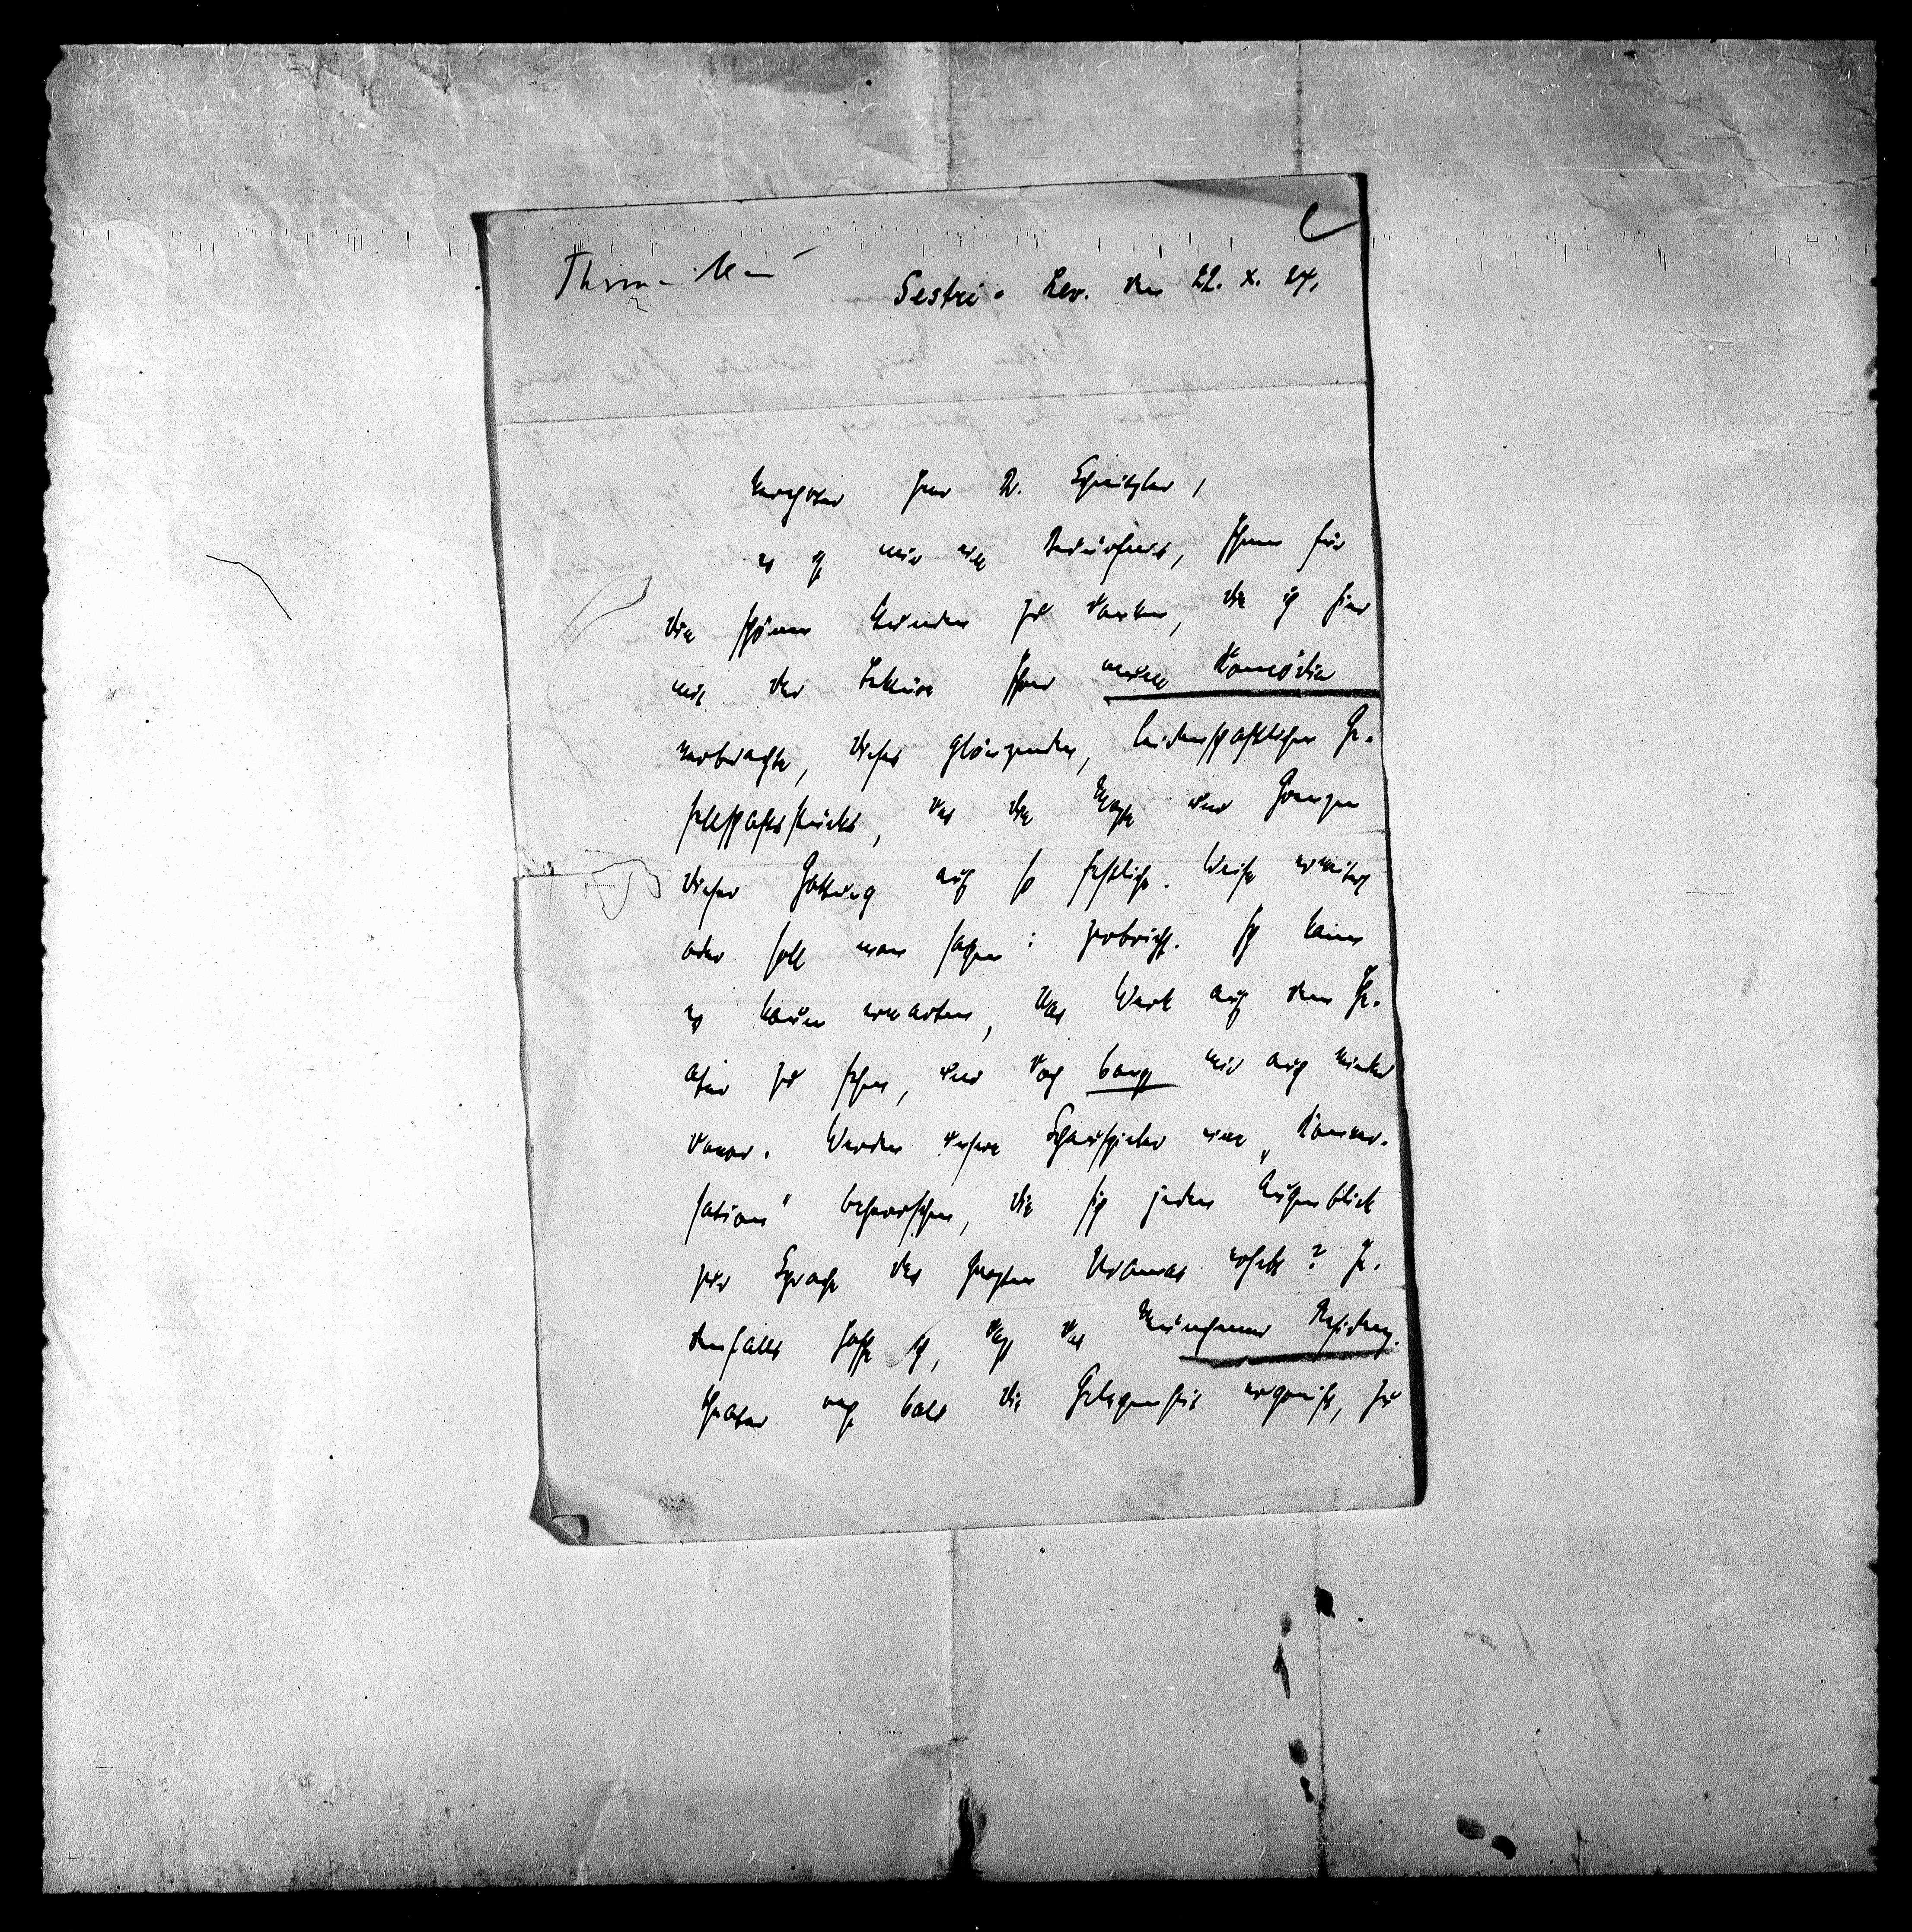 Thomas Mann
Sestri-Lev. den 22. X. 24.
Verehrter Herr D. Schnitzler,
es ist mir ein Bedürfnis, Ihnen für
die schönen Stunden zu danken, die ich hier
mit der Lektüre Ihrer neuen Komödie
verbrachte, dieses glänzenden, leidenschaftlichen Ge-
sellschaftsstücks, das die Maße und Grenzen
dieser Gattung auf so festliche Weise erweitert
oder soll man sagen: zerbricht. Ich kann
es kaum erwarten, das Werk auf dem The-
ater zu sehen, und doch bangt mir auch wieder
davor. Werden unsere Schauspieler eine „Konver-
sation" beherrschen, die sich jeden Augenblick
zur Sprache des großen Dramas erhebt? Je-
denfalls hoffe ich, daß das Münchener Residenz-
theater recht bald die Gelegenheit ergreift, zu